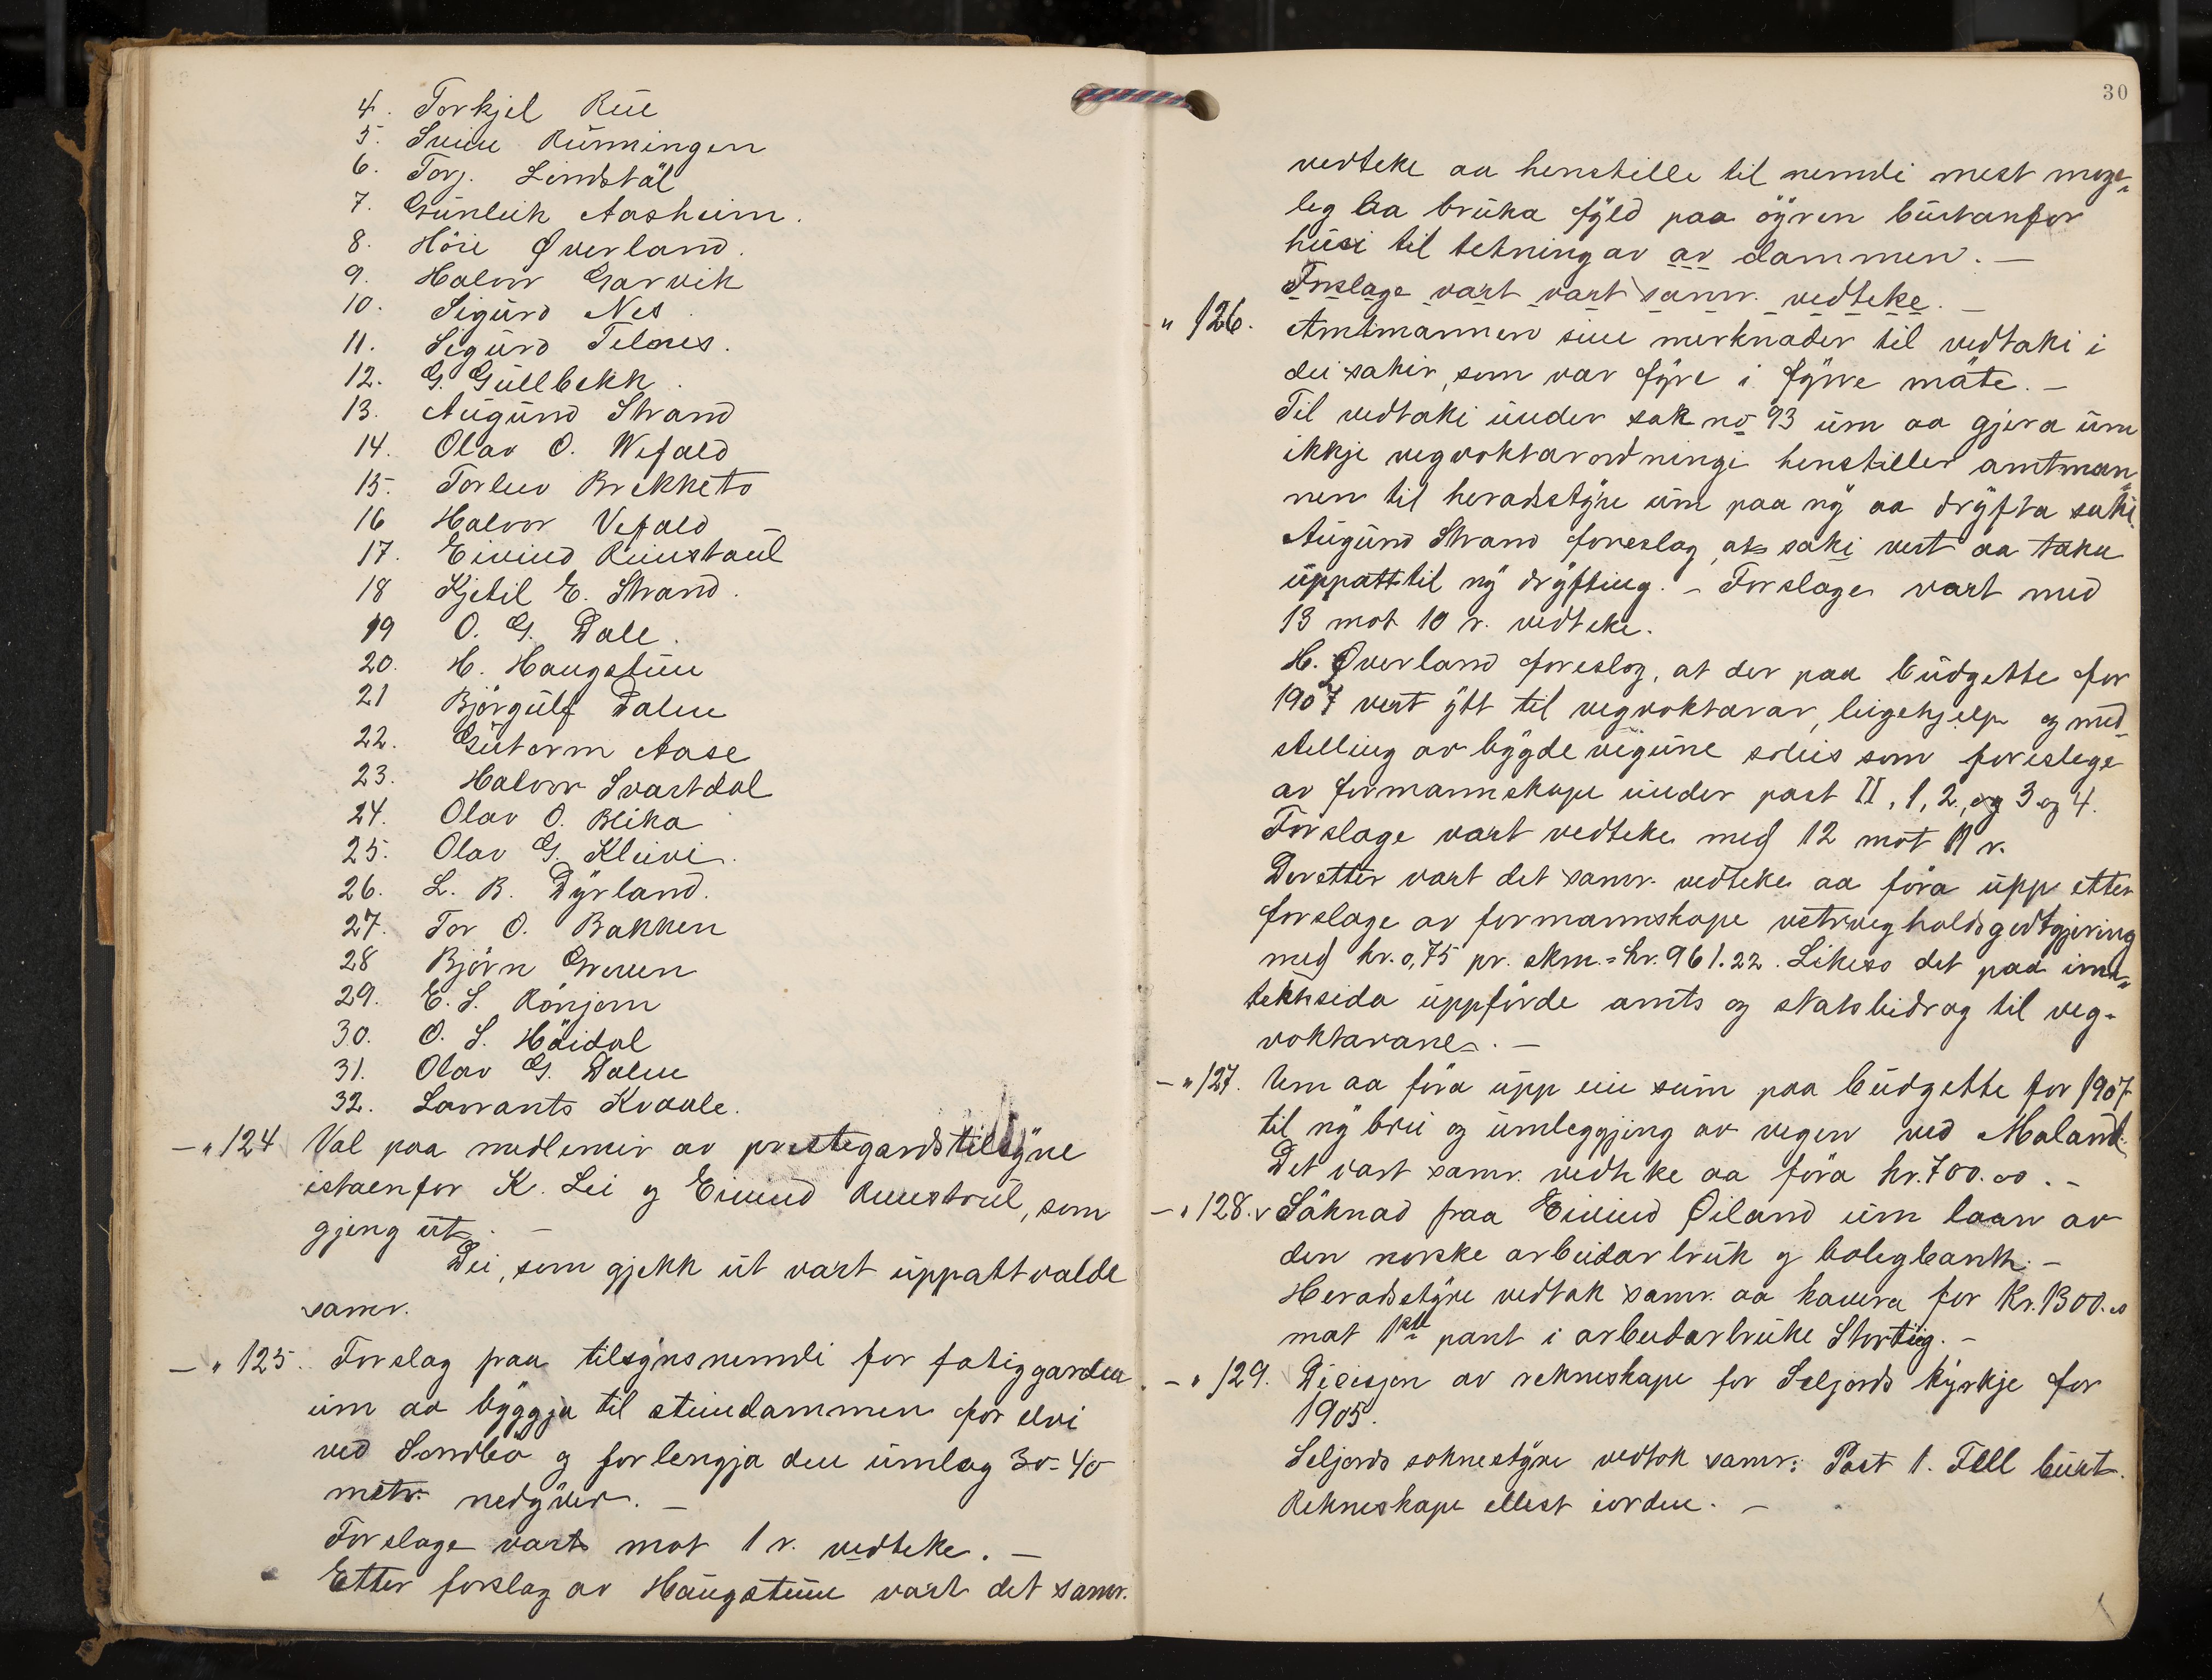 4. Torkjel Rue
5. Svein Rünningen
6. Torj. Lindstäl
7. Günleik Aasheim.
8. Höie Øverland.
9. Halvor Garvik
10. Sigürd Nes.
11. Sigürd Telnes.
12. G. Güllbekk.
13. Augünd Strand
14. Olav O. Wefald
15. Torleiv Brekketo
16 Halvor Vefald
17. Eivind Rüistaul
18 Kjetil E. Strand.
19 O. G. Dale.
20. H. Haugstün
21 Björgülf Dalen
22. Gütorm Aase
23. Halvor Svartdal
24. Olav O. Blika
25. Olav G. Kleivi.
26. L. R. Dyrland.
27. Tor O. Bakken
28 Björn Grøven
29. E. S. Rönjom
30. O. S. Häidal
31. Olav G. Dalen
32. Lavrants Kvaale.
—„ 124 Val paa medlemir av prestegardstilsyne
istaenfor K. Lei og Eivind Ruistoül, som
gjeng üt. —
Dei, som gjekk üt vart üppatt valde
samr.
—„ 125. Forslag fraa tilsynsnemdi for fatiggarden
üm aa byggja til steindammen for elvi
ved Sandbö og forlengja den ümlag 30-40
metr. nedyver. —
Forslage vart mot 1 r. vedteke. —
Etter forslag av Haugstün vart det samr.
30
vedteke aa henstille til nemdi mest moge„
leg aa brüka fyld paa öyren bürtanfor
hüsi til tetning av av dammen. —
Forslage vart vart samr. vedteke. —
„ 126. Amtmannen sine merknader til vedtaki i
dei sakir, som var fyre i fyrre mäte. —
Til vedtaki ünder sak no 93 üm aa gjera üm
ikkje vegvoktarordningi henstiller amtman„
nen til heradstyre üm paa ny aa dryfta saki.
Augünd Strand foreslog at saki vert aa taka
üppatt til ny dryfting. – Forslage vart med
13 mot 10 r. vedteke.
H. Øverland foreslog, at der paa büdgette for
1907 vert ytt til vegvoktarar, leigehjelp og med„
stelling av bygdevegüne soleis som foreslege
av formannskape ünder post II, 1, 2, og 3 og 4.
Forslage vart vedteke med 12 mot 11 r.
Deretter vart det samr. vedteke aa föra üpp etter
forslage av formannskape vetrveghaldsgodtgjering
med kr. 0,75 pr. skm. = kr. 961.22. Likeso det paa inn„
tektsida üppförde amts og statsbidrag til veg-
voktarane. —
—„ 127. Um aa föra üpp ein süm paa büdgette for 1907
til ny brü og ümleggjing av vegen ved Maland.
Det vart samr. vedteke aa föra kr. 700.00. —
—„ 128. v Söknad fraa Eivind Øiland üm laan av
den norske arbeidarbrük og boligbank. —
Heradstyre vedtok samr. aa kavera for Kr. 1300.00
mot 1ste pant i arbeidarbrüke Stortüg. —
—„ 129. Dicisjon av rekneskape for Seljords kyrkje for
1905.
Seljords soknestyre vedtok samr.: Post 1. Fell bürt.
Rekneskape ellest iorden. —